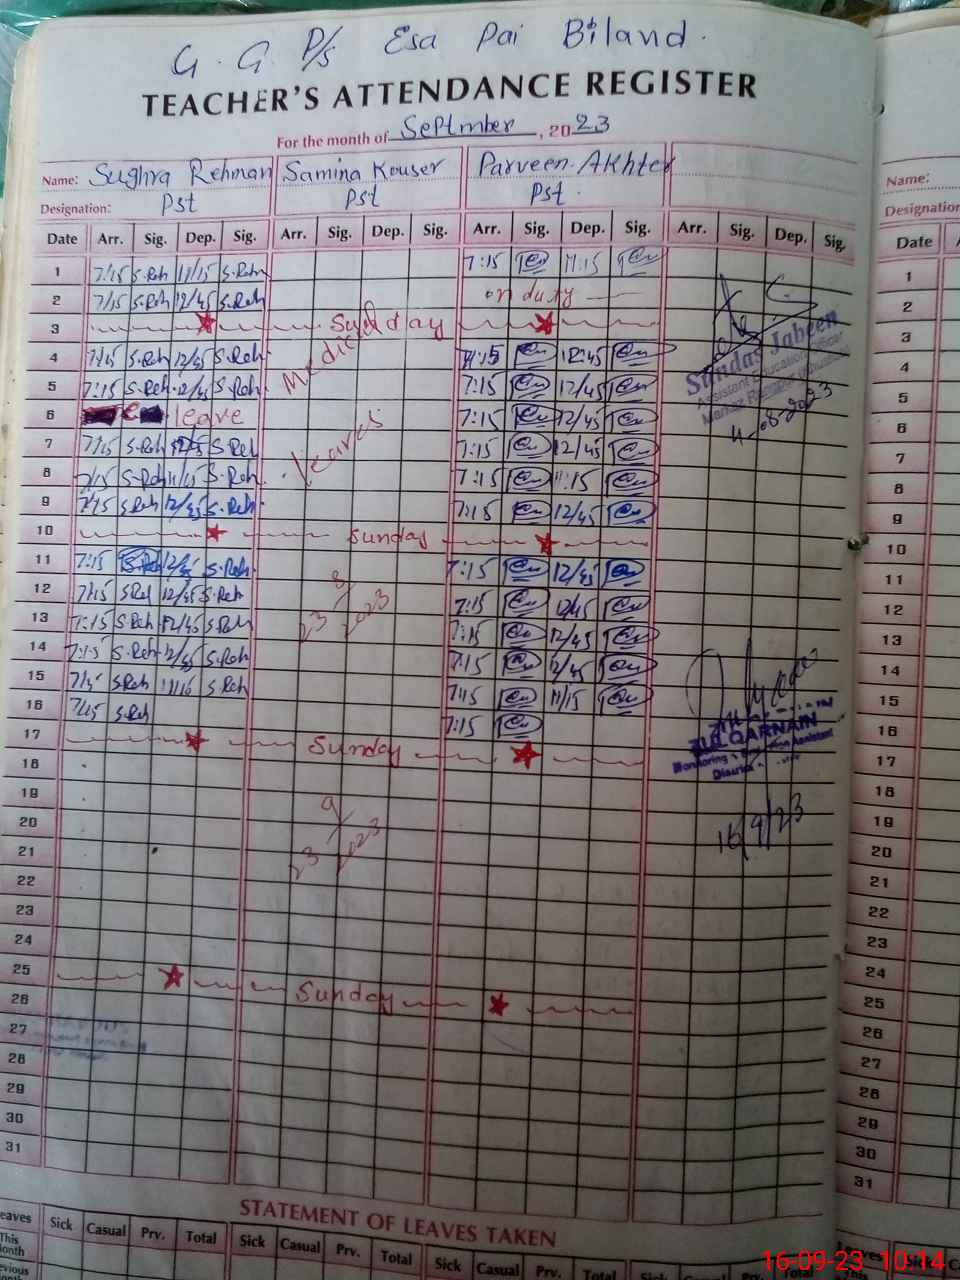 G. G P/s Esa Pai Biland.
TEACHER'S ATTENDANCE REGISTER
For the month of Septmber, 2023
Name: Sughra Rehman Samina Kouser Parveen Akhter Name:
Designation: Pst Pst Pst. Designation
Date Arr. Sig. Dep. Sig. Arr. Sig. Dep. Sig. Arr. Sig. Dep. Sig. Arr. Sig. Dep. Sig. Date
1 7:15 S.Reh 11/15 S.Reh 7:15 11:15 1
2 7/15 S.Reh 12/45 S.Reh on duty 2
3 Sunday 3
4 7/15 S.Reh 12/45 S.Reh Medical 7:15 12:45 Sundas Jabeen 4
5 7:15 S.Reh 12/45 S.Reh 7:15 12/45 Assistant Education Officer 5
6 leave 7:15 12/45 6
7 7/15 S.Reh 12/45 S.Reh leaves 7:15 12/45 4-08-2023 7
8 7/15 S.Reh 11/15 S.Reh 7:15 11:15 8
9 7/15 S.Reh 12/45 S.Reh 7:15 12/45 9
10 Sunday 10
11 7:15 S.Reh 12/45 S.Reh 7:15 12/45 11
12 7/15 S.Reh 12/45 S.Reh 8 7:15 12/45 12
13 7:15 S.Reh 12/45 S.Reh 23 2023 7:15 12/45 13
14 7:15 S.Reh 12/45 S.Reh 7:15 12/45 14
15 7/15 S.Reh 11/15 S.Reh 7:15 11/15 15
16 7/15 S.Reh 7:15 ZULQARNAIN 16
17 Sunday Monitoring Assistant 17
18 District 18
19 9 19
20 23 2023 16/9/23 20
21 21
22 22
23 23
24 24
25 Sunday 25
26 26
27 27
28 28
29 29
30 30
31 31
STATEMENT OF LEAVES TAKEN
Leaves Sick Casual Prv. Total Sick Casual Prv. Total Sick Casual Prv. Total Sick Leaves Sick
This Month
Previous
16-09-23 10:14